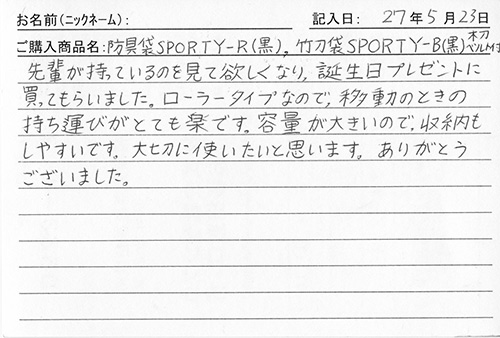 お名前(ニックネーム): 記入日: 27年5月23日
ご購入商品名:防具袋SPORTY-R(黒)。竹刀袋SPORTY-B(黒)木刀ベルト付
先輩が持っているのを見て欲しくなり、誕生日プレゼントに
買ってもらいました。ローラータイプなので、移動のときの
持ち運びがとても楽です。容量が大きいので、収納も
しやすいです。大切に使いたいと思います。ありがとう
ございました。